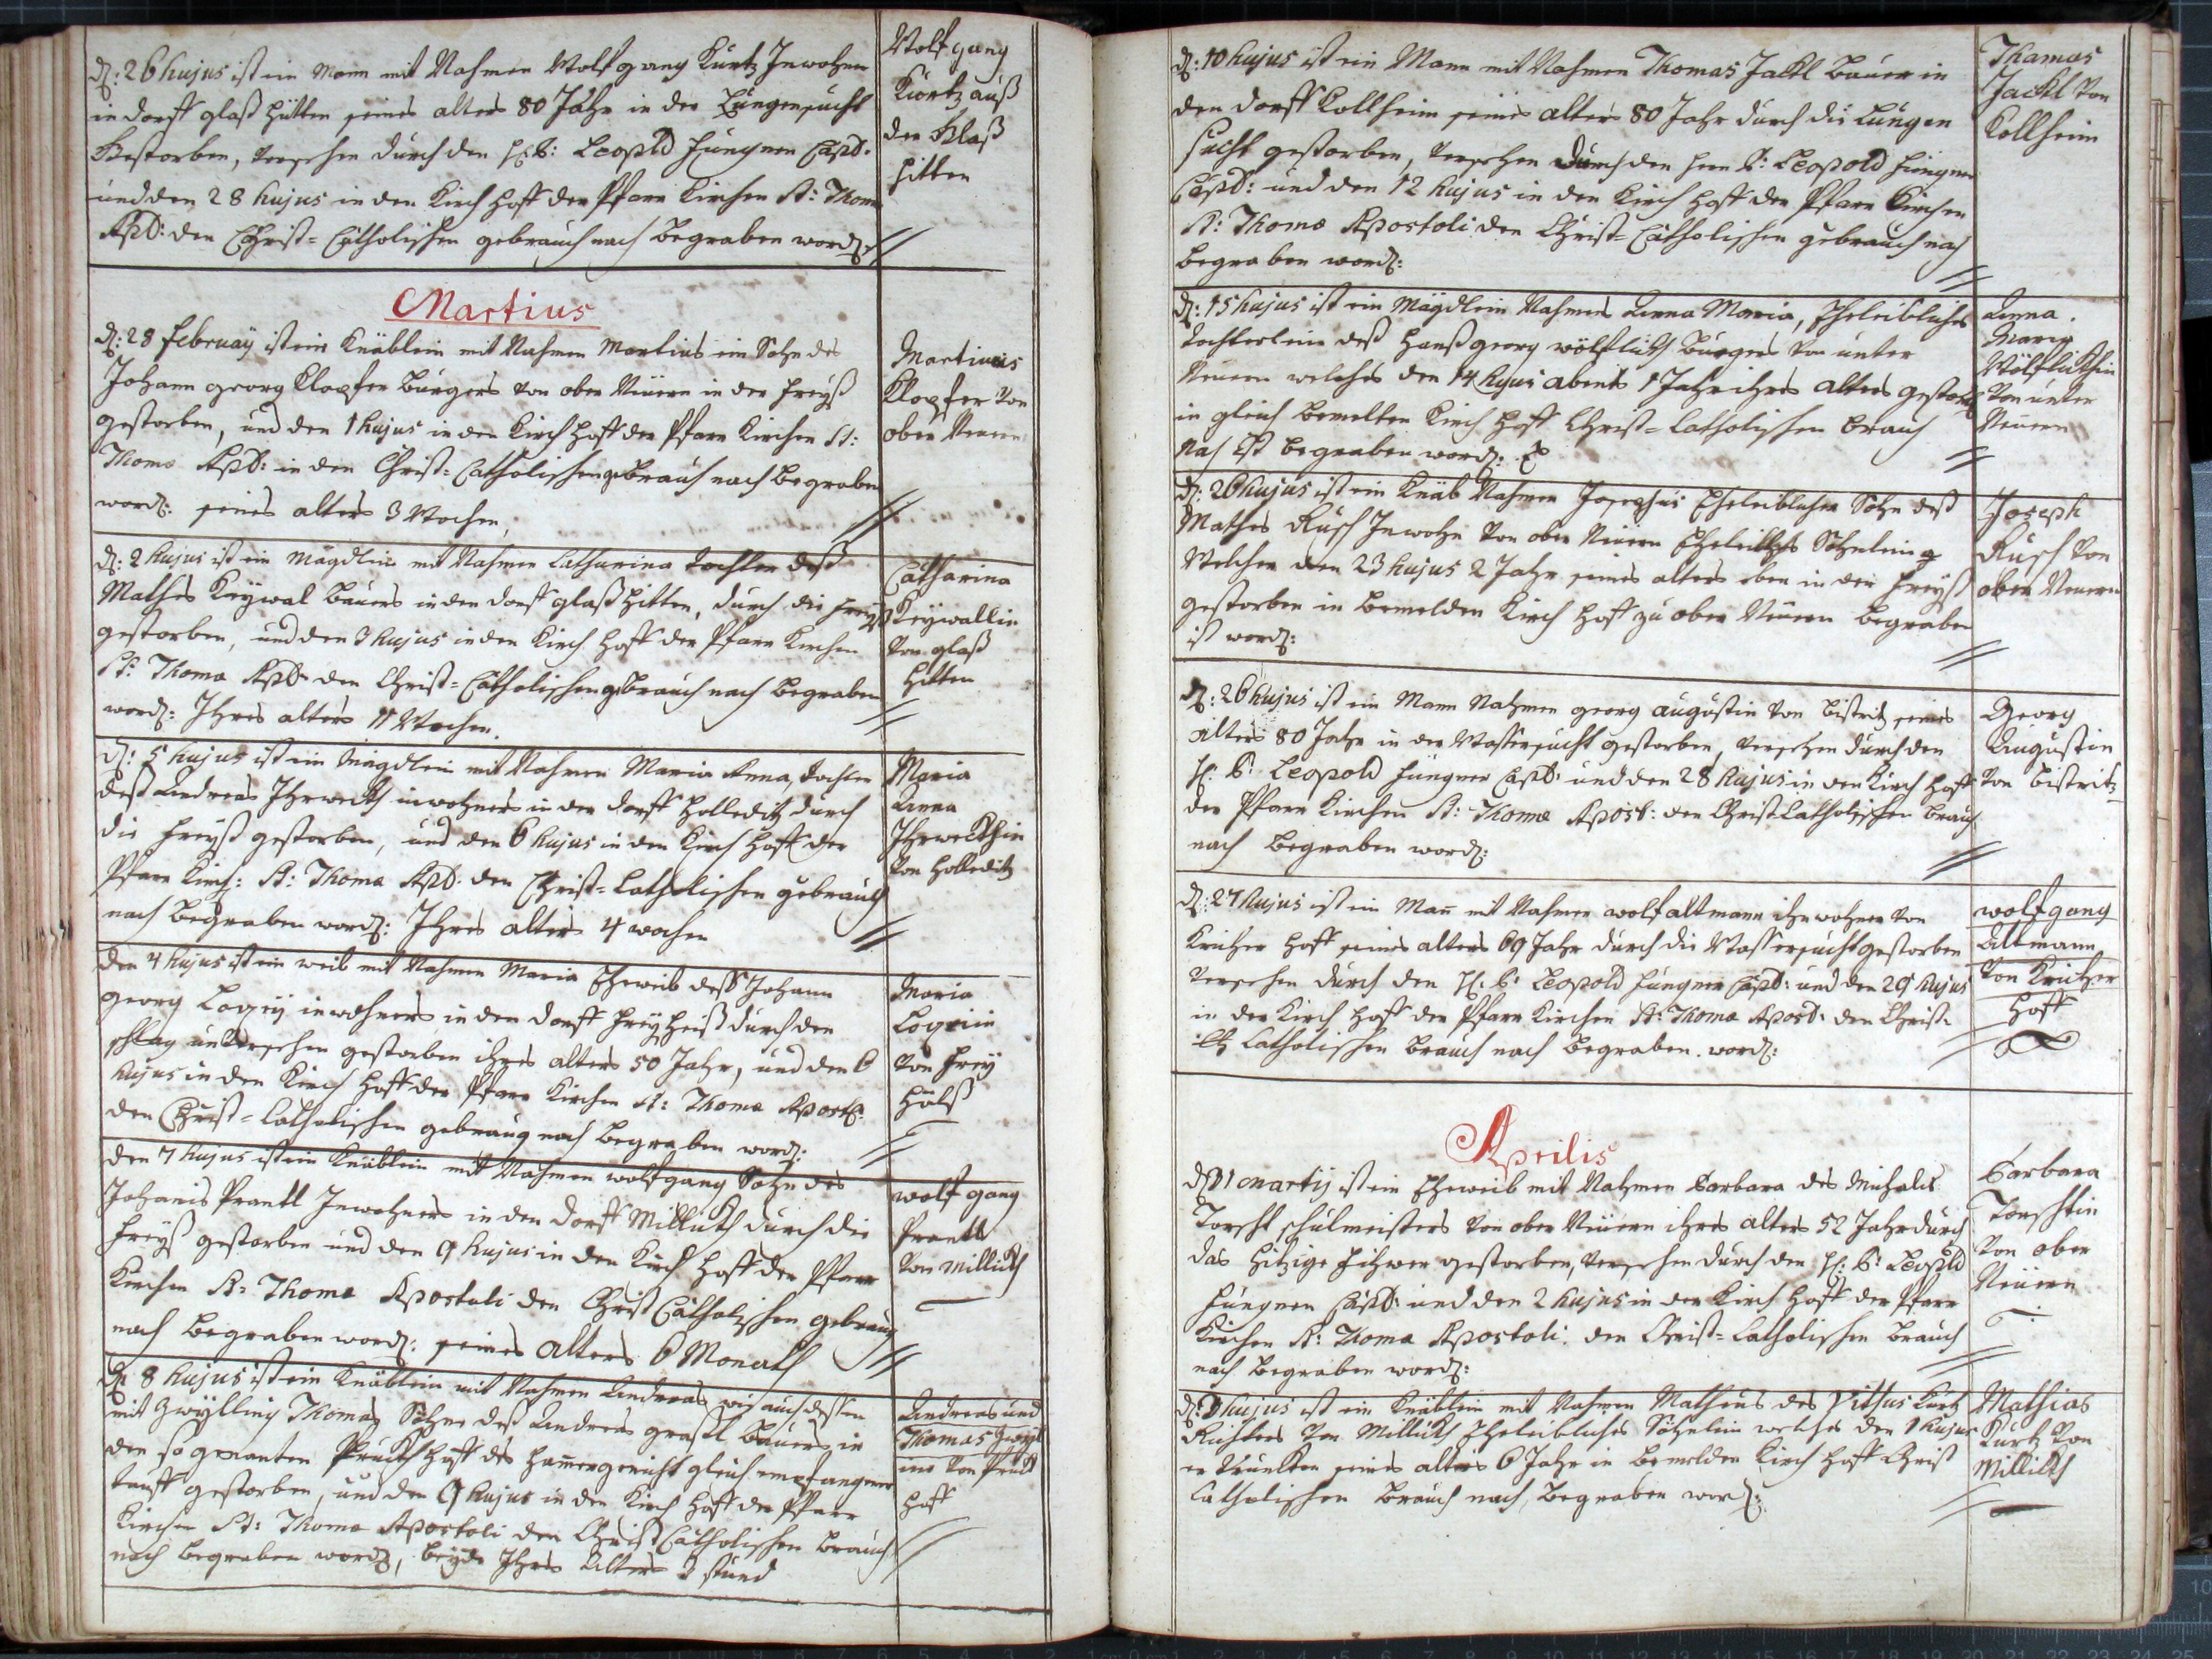 d: 26 hujus ist ein Mann mit Nahmen Wolfgang Kürtz Inwohner
in dorff glaß hütten seines alters 80 Jahr in der Lungensucht
Gestorben, versehen durch den H: P: Leopold Hüngner Capl:
und den 28 hujus in den Kirch hoff der Pfarr Kirchen St: Thomæ
Apl: den Christ=Catholischen gebrauch nach begraben word:
Wolfgang
Kürtz auß
der Glaß
hitten
Martius
d: 28 februarÿ ist ein Knäblein mit Nahmen Martinus ein Sohn des
Johann georg Klopfer burgers von ober Neüern in der freyß
gestorben, und den 1 hujus in den Kirch hoff der Pfarr Kirchen St:
Thomæ Apl: in den Christ=Catholischen gebrauch nach begraben
word: seines alters 3 Wochen,
Martinus
Klopfer von
ober Neuern
d: 2 hujus ist ein Mägdlein mit Nahmen Catharina tochter deß
Mathes Keÿwal bauers in den dorff glaß hitten, durch die freyß
gestorben, und den 3 hujus in den Kirch hoff der Pfarr Kirchen
St: Thoma Apl: den Christ=Catholischen gebrauch nach begraben
word: Ihres alters 11 Wochen.
Catharina
Keÿwallin
von glaß
hitten
d: 5 hujus ist ein Mägdlein mit Nahmen Maria Anna, dochter
deß Andreas Ihrweckh inwohners in der dorff Holleditz durch
die freyß gestorben, und den 6 hujus in den Kirch hoff der
Pfarr Kirch: St: Thomæ Apl: den Christ=Catholischen gebrauch
nach begraben word: Ihres alters 4 wochen
Maria
Anna
Ihrweckhin
von Holleditz
den 4 hujus ist ein weib mit Nahmen Maria Eheweib deß Johann
georg inwohners in den dorff freÿ durch den
schlag unversehen gestorben ihres alters 50 Jahr, und den 6
hujus in den Kirch hoff der Pfarr Kirchen St: Thomæ Apost:
den Christ=Catholischen gebrauch nach begraben word:
Maria
von freÿ
Hülß
den 7 hujus ist ein Knäblein mit Nahmen wolfgang Sohn des
Johanis Prantl Inwohners in den dorff Millickh durch die
freyß gestorben und den 9 hujus in den Kirch hoff der Pfarr
Kirchen St: Thomæ Apostoli den Christ Catholischen gebrauch
nach begraben word: seines alters 6 Monath
wolfgang
Prantl
von Millickh
d: 8 hujus ist ein Knäblein mit Nahmen Andreas wie auch dessen
mit Zwÿlling Thomas Söhne deß Andreas graßl bauers in
den so genanten Pruckh hoff des hamergericht gleich empfangener
tauff gestorben, und den 9 hujus in den Kirch hoff der Pfarr
Kirchen St: Thomæ Apostoli den Christ Catholischen brauch
nach begraben word:, beÿde Ihres Alters 3 stund
Andreas und
Thomas
von Pruck
hoff
d: 10 hujus ist ein Mann mit Nahmen Thomas Jakl bauer in
den dorff Kollheim seines alters 80 Jahr durch die Lungen
sucht gestorben, versehen durch den hern P: Leopold Hüngner
Capl: und den 12 hujus in den Kirch hoff der Pfarr Kirchen
St: Thomæ Apostoli den Christ=Catholischen gebrauch nach
begraben word:
Thamas
Jackl von
Kollheim
d: 15 hujus ist ein Mägdlein Nahmens Anna Maria, Eheleibliches
tochterlein deß Hanß georg wölflickh burgers von unter
Neuern welches den 14 hujus abents 1 Jahr ihres alters gestorb:
in gleich bemelten Kirch hoff Christ=Catholischen brauch
nach ist begraben word:
Anna
Maria
Wölflickhin
von unter
Neuern
d: 26 hujus ist ein Knäb Nahmen Josephus Eheleiblicher Sohn deß
Mathes Rusch Inwohn von ober Neuern Eheleiblichs Söhnlein
Welcher den 23 hujus 2 Jahr seines alters eben in der freyß
gestorben in bemelden Kirch hoff zu ober Neüern begraben
ist word:
Joseph
Rusch von
ober Neuern
d: 26 hujus ist ein Mann Nahmen georg augustin von bistritz seines
alters 80 Jahr in der Wassersucht gestorben, versehen durch den
H: P: Leopold Hüngner Capl: und den 28 hujus in den Kirch hoff
der Pfarr Kirchen St: Thomæ Apost: den Christ Catholischen brauch
nach begraben word:
Georg
Augustin
von bistritz
d: 27 hujus ist ein Man mit Nahmen wolf altmann ihnwohner von
Kricher hoff seines alters 69 Jahr durch die Wassersucht gestorben
versehen durch den H: P: Leopold Hüngner Capl: und den 29 hujus
in der Kirch hoff der Pfarr Kirchen St: Thomæ Apost: den Christ=
Catholischen brauch nach begraben word:
wolfgang
Altmann
von Kricher
hoff
Aprilis
d 31 martÿ ist ein Eheweib mit Nahmen Barbara des Michalis
Torscht schulmeisters von ober Neüern ihres alters 52 Jahr durch
das hitzige gestorben, versehen durch den H: P: Leopold
Hüngner Capl: und den 2 hujus in der Kirch hoff der Pfarr
Kirchen St: Thoma Apostoli den Christ=Catholischen brauch
nach begraben word:
Barbara
Torschtin
von ober
Neüern
d: 3 hujus ist ein Knäblein mit Nahmen Matheus des Vittus Kürtz
Richters von Millickh Eheleibliches Söhnlein welches den 1 hujus
er trunken seines alters 6 Jahr in bemelden Kirch hoff Christ
Catholischen brauch nach begraben word:
Mathias
Kürtz von
Millickh